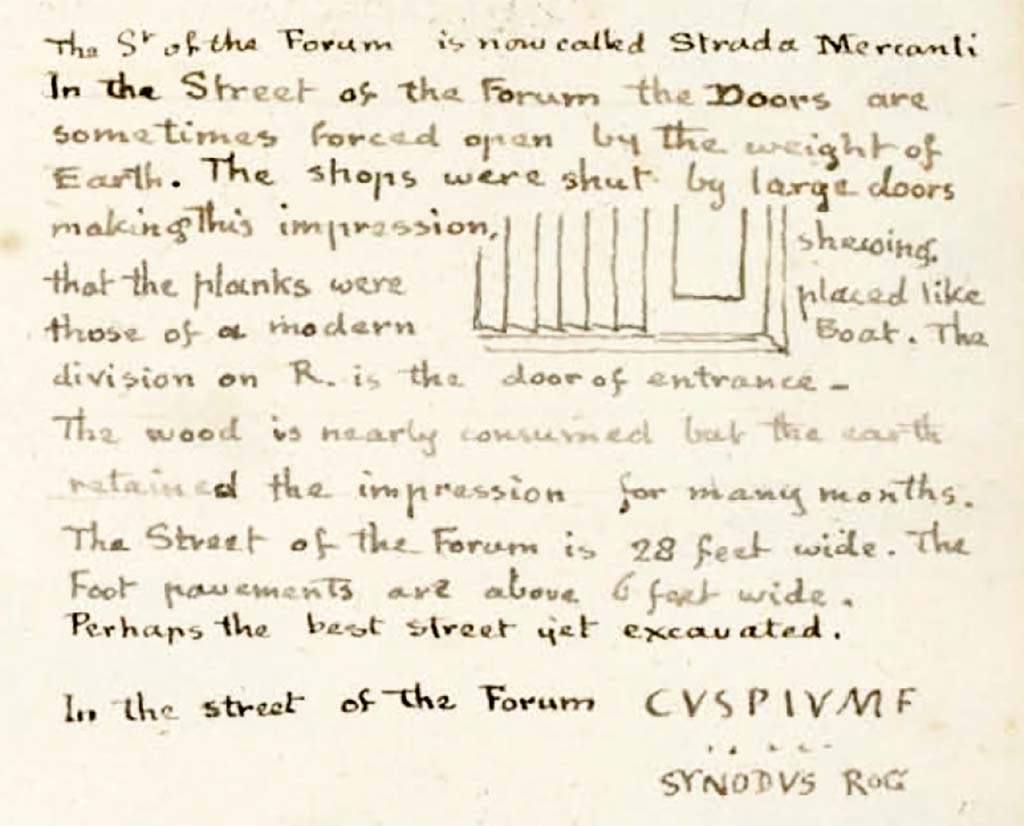 The Sr of the Forum is now called Strada Mercanti
In the Street of the Forum the Doors are
sometimes forced open by the weight of
Earth. The shops were shut by large doors
making This impression, shewing.
that the planks were placed like
those of a modern Boat. The
division on R. is the door of entrance –
The wood is nearly consumed but the earth
retained the impression for many months.
The Street of the Forum is 28 feet wide. The
Foot pavements are above 6 feet wide.
Perhaps the best street yet excavated.
In the street of the Forum CVSPIVMF
. . . . -
SYNODVS ROG